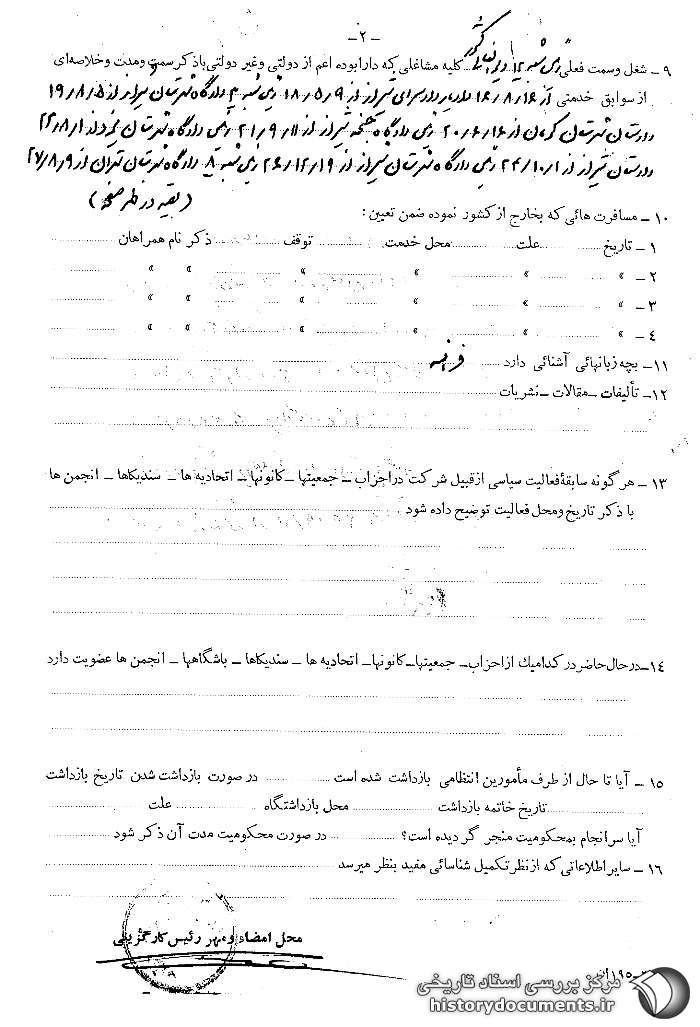 -۲-
۹ - شغل وسمت فعلی رئیس شعبه ۱۲ دیوانعالی کشور کلیه مشاغلی که دارا بوده اعم از دولتی وغیر دولتی باذکر سمت ومدت وخلاصه‌ای
از سوابق خدمتی از ۱۶/۸/۱۶ دادیار دادسرای شیراز از ۱۸/۵/۹ رئیس شعبه ۲ دادگاه شهرستان شیراز از ۱۹/۸/۵
دادستان شهرستان کرمان از ۲۰/۶/۱۶ رئیس دادگاه بخش شیراز از ۲۱/۹/۱۱ رئیس دادگاه شهرستان از ۲۲/۸/۱
دادستان شیراز از ۲۴/۱۰/۱ رئیس دادگاه شهرستان شیراز از ۲۶/۱۲/۱۹ رئیس شعبه ۸ دادگاه شهرستان تهران از ۲۷/۸/۹
(بقیه در ظهر صفحه)
۱۰ - مسافرت هائی که بخارج از کشور نموده ضمن تعیین :
۱ - تاریخ علت محل خدمت توقف ذکر نام همراهان
۲ - » » » » » »
۳ - » » » » » »
۴ - » » » » » »
۱۱ - بچه زبانهائی آشنائی دارد فرانسه
۱۲ - تألیفات - مقالات - نشریات
۱۳ - هر گونه سابقهٔ فعالیت سیاسی از قبیل شرکت در احزاب - جمعیتها - کانونها - اتحادیه ها - سندیکاها - انجمن ها
با ذکر تاریخ ومحل فعالیت توضیح داده شود
۱۴ - در حال حاضر در کدامیك از احزاب - جمعیتها - کانونها - اتحادیه ها - سندیکاها - باشگاهها - انجمن ها عضویت دارد
۱۵ - آیا تا حال از طرف مأمورین انتظامی بازداشت شده است در صورت بازداشت شدن تاریخ بازداشت
تاریخ خاتمه بازداشت محل بازداشتگاه علت
آیا سرانجام بمحکومیت منجر گردیده است؟ در صورت محکومیت مدت آن ذکر شود
۱۶ - سایر اطلاعاتی که از نظر تکمیل شناسائی مفید بنظر میرسد
محل امضاء ومهر رئیس کارگزینی
مرکز بررسی اسناد تاریخی
historydocuments.ir